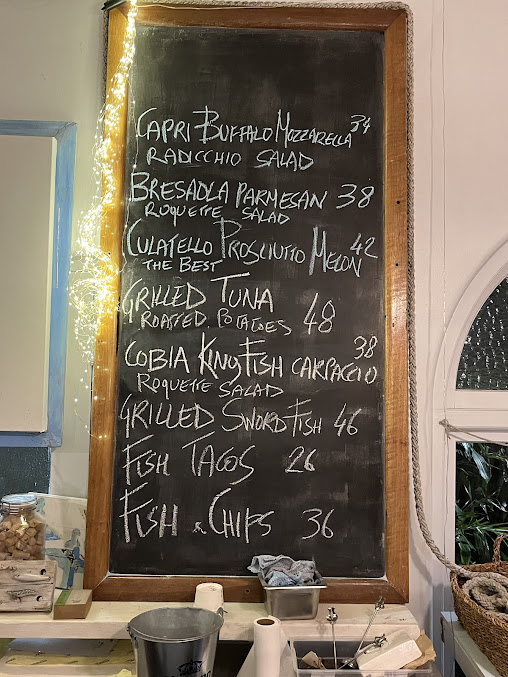 CAPRI BUFFALO MOZZARELLA 34
RADICCHIO SALAD
BRESAOLA PARMESAN 38
ROQUETTE SALAD
CULATELLO PROSCIUTTO MELON 42
THE BEST
GRILLED TUNA
ROASTED POTATOES 48
COBIA KINGFISH CARPACCIO 38
ROQUETTE SALAD
GRILLED SWORDFISH 46
FISH TACOS 26
FISH & CHIPS 36